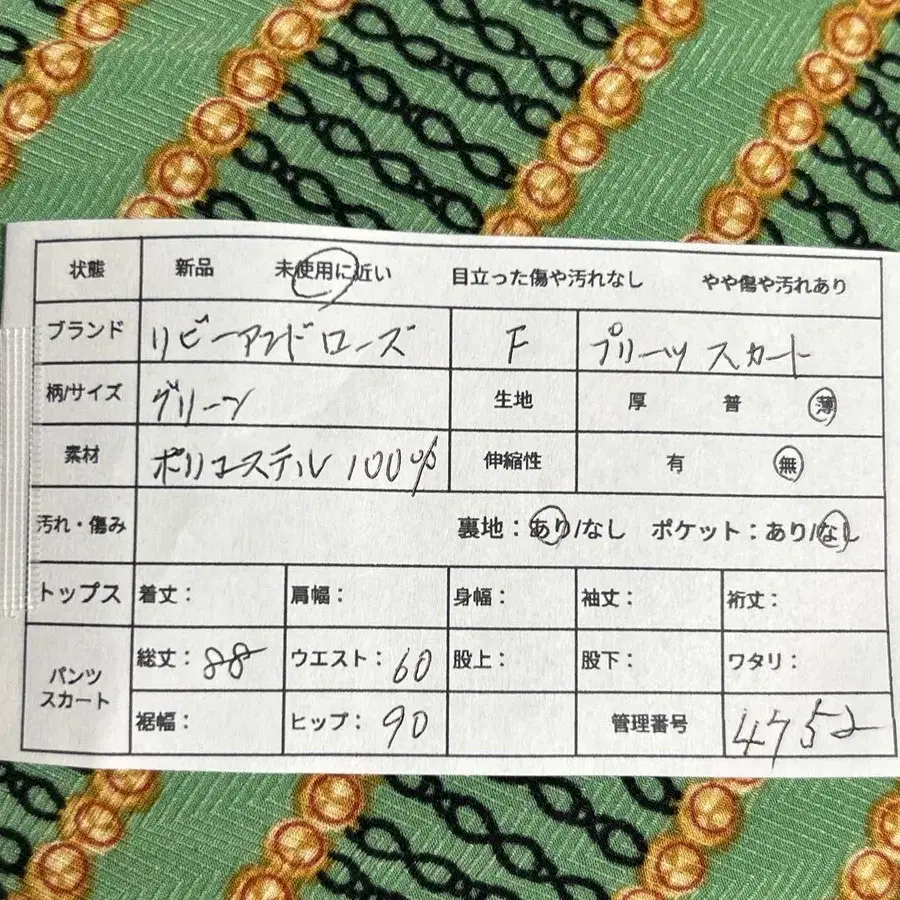 状態 新品 未使用に近い 目立った傷や汚れなし やや傷や汚れあり
ブランド リビーアンドローズ F プリーツスカート
柄/サイズ グリーン 生地 厚 普 薄
素材 ポリエステル 100% 伸縮性 有 無
汚れ・傷み 裏地：あり/なし ポケット：あり/なし
トップス 着丈： 肩幅： 身幅： 袖丈： 裄丈：
パンツ 総丈：88 ウエスト：60 股上： 股下： ワタリ：
スカート 裾幅： ヒップ：90 管理番号 4752